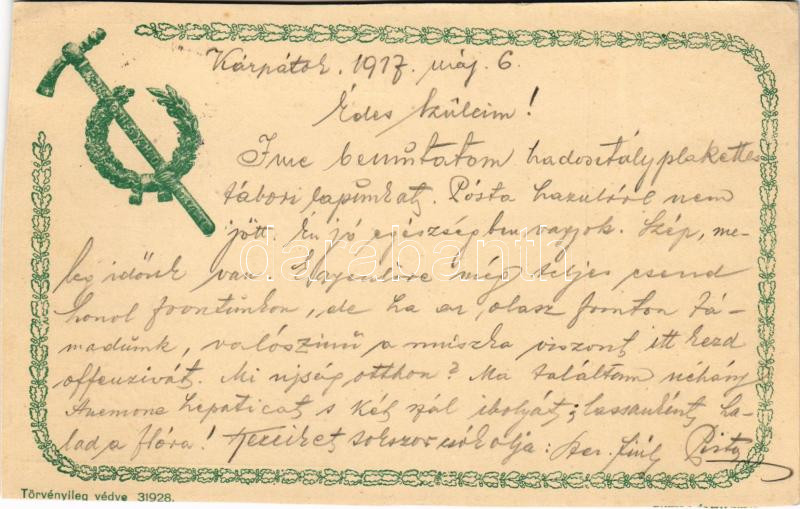 Kárpátok. 1917. máj. 6.
Édes Szüleim!
Ime bemutatom hadosztályplakettes
tábori lapunkat. Pósta hazulról nem
jött. Én jó egészségben vagyok. Szép, me-
leg időnk van. Egyenlőre még teljes csend
honol frontunkon, de ha az olasz fronton tá-
madunk, valószinű a muszka viszont itt kezd
offenzivát. Mi ujság otthon? Ma találtam néhány
Anemone hepaticat s két szál ibolyát; lassanként ha-
lad a flóra! Kezeiket sokszor csókolja: szer. fiuk Pista
Törvényileg védve 31928.
darabanth